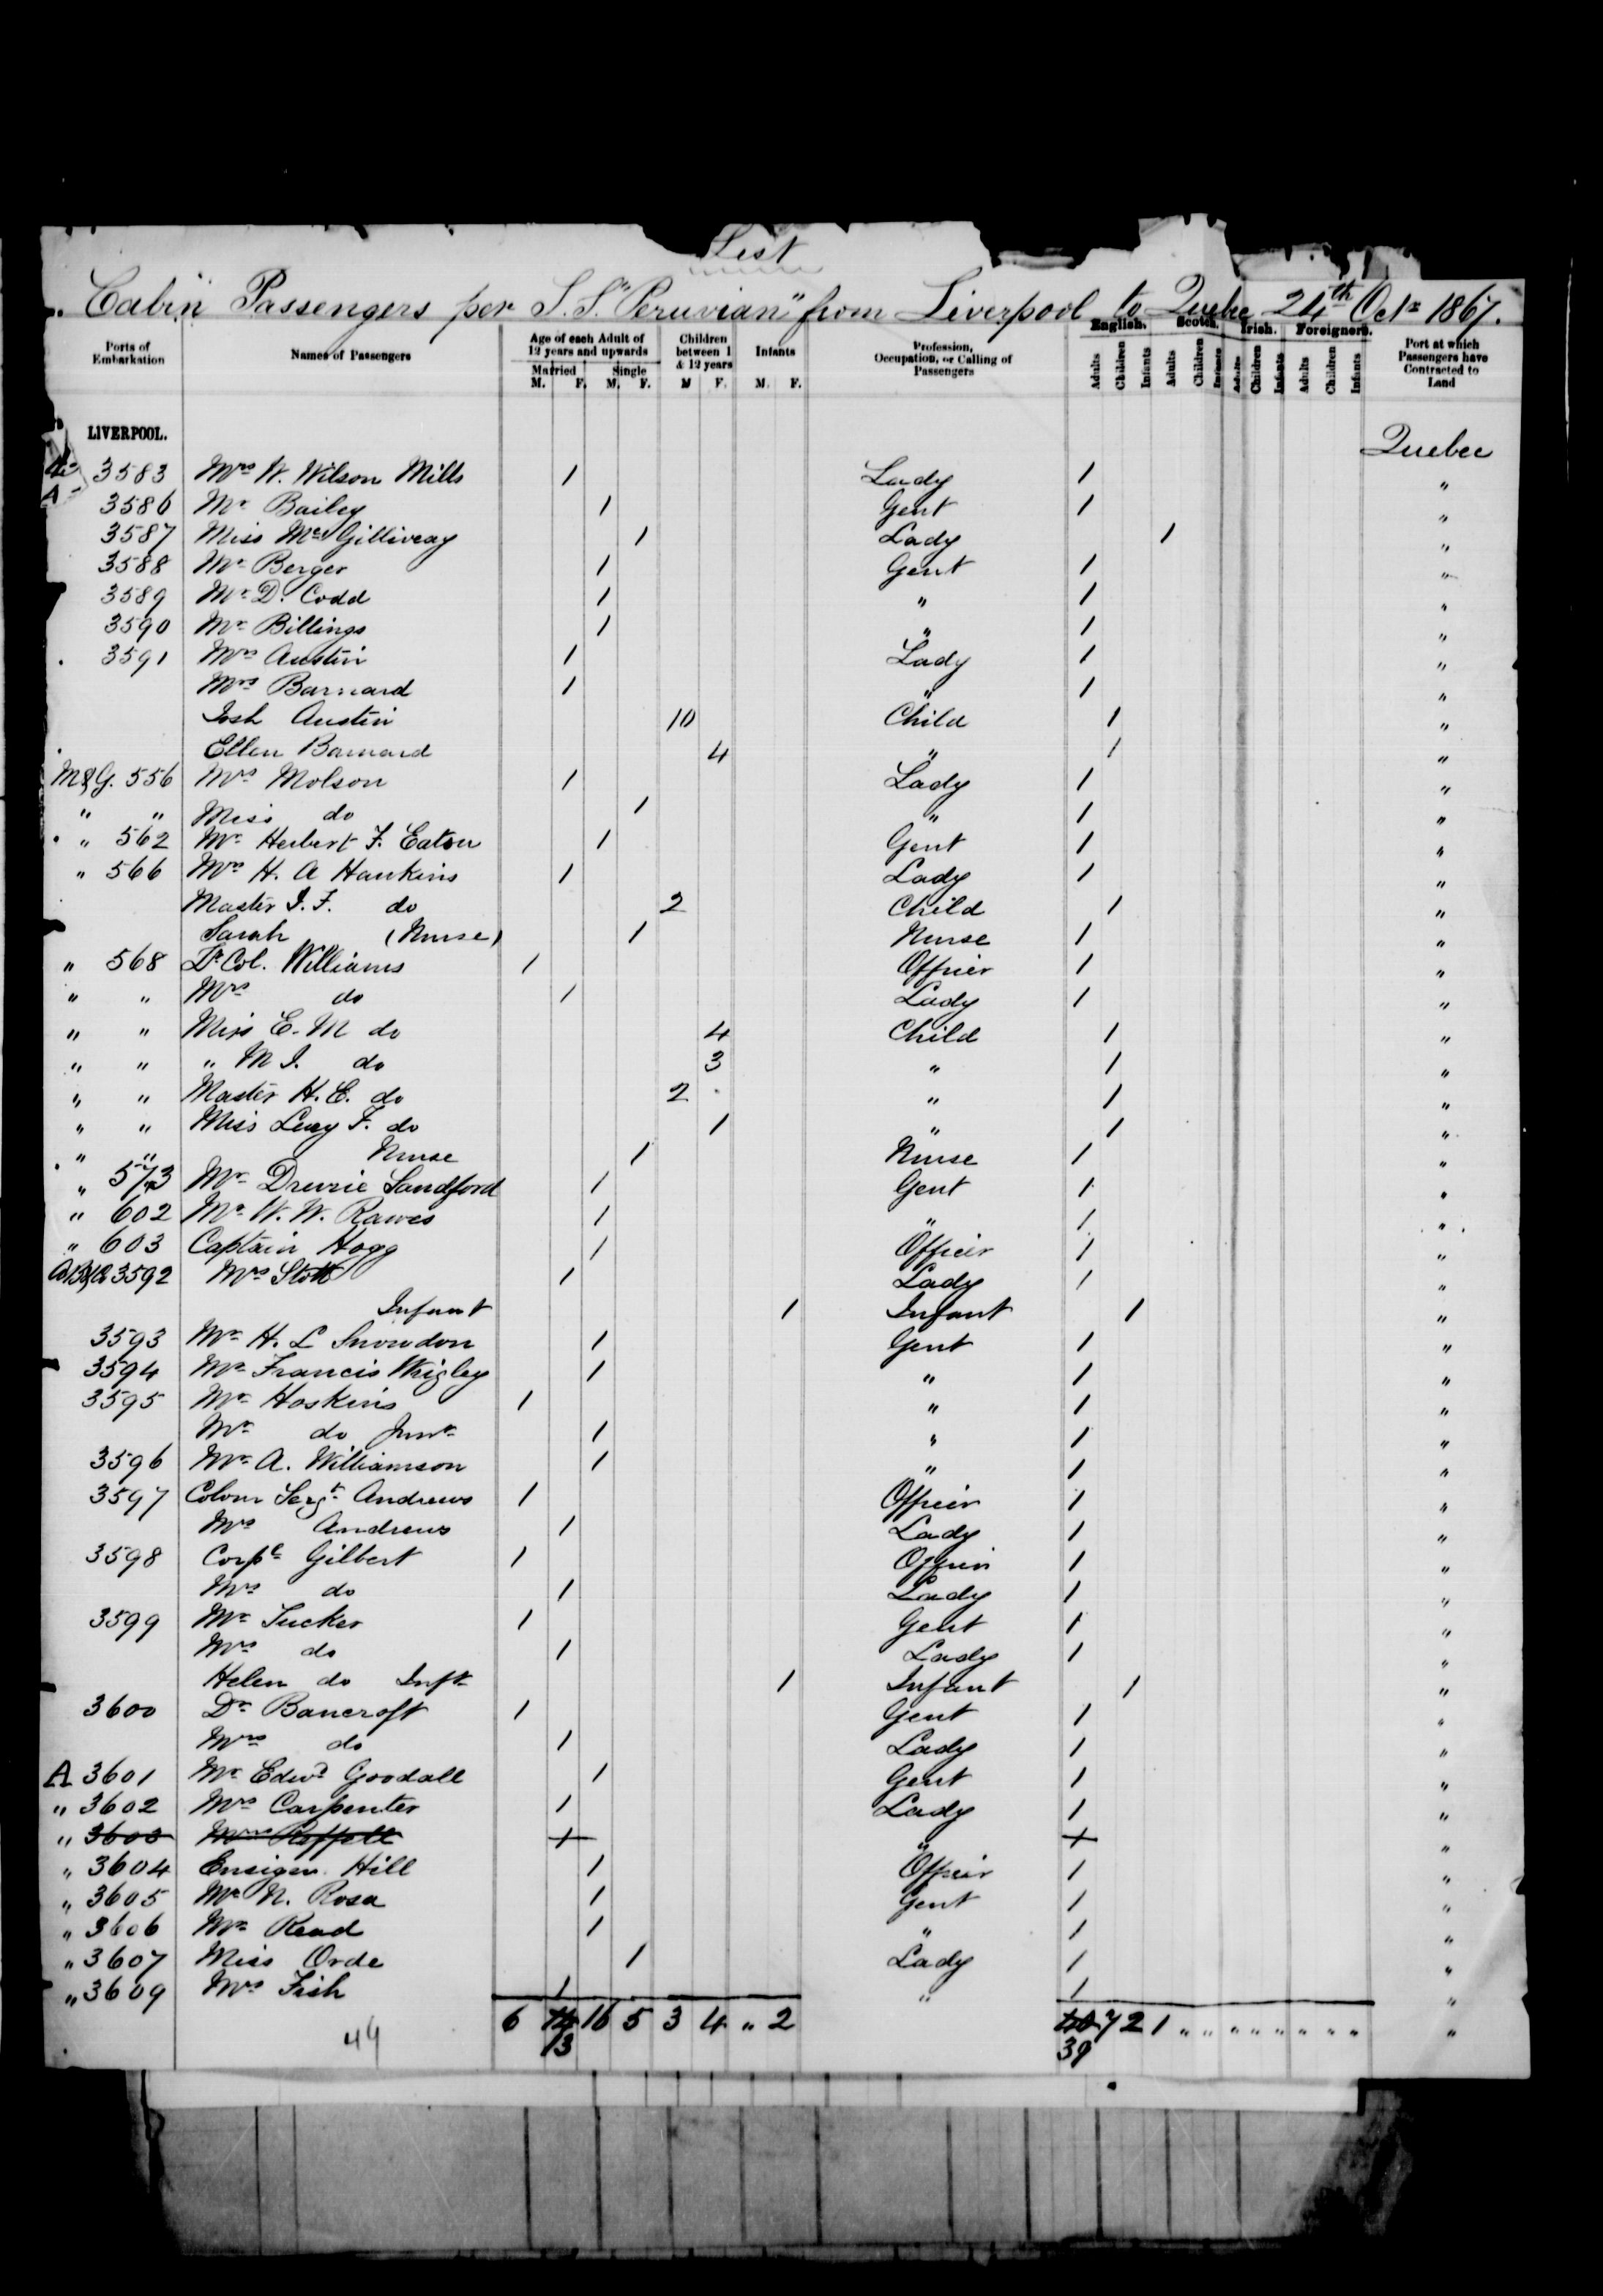 List
Cabin Passengers per S.S. "Peruvian" from Liverpool to Quebec 24th Octr 1867.
Ports of Embarkation
Names of Passengers
Age of each Adult of 12 years and upwards
Married Single
M. F. M. F.
Children between 1 & 12 years
M F.
Infants
M. F.
Profession, Occupation, or Calling of Passengers
English. Scotch. Irish. Foreigners.
Adults Children Infants Adults Children Infants Adults Children Infants Adults Children Infants
Port at which Passengers have Contracted to Land
LIVERPOOL. Quebec
3583 Mrs W. Wilson Mills 1 Lady 1 "
A 3586 Mr Bailey 1 Gent 1 "
3587 Miss Mc Gilliveay 1 Lady 1 "
3588 Mr Berger 1 Gent 1 "
3589 Mr D. Codd 1 " 1 "
3590 Mr Billings 1 " 1 "
3591 Mrs Austin 1 Lady 1 "
Mrs Barnard 1 " 1 "
Josh Austin 10 Child 1 "
Ellen Barnard 4 " 1 "
M&G. 556 Mrs Molson 1 Lady 1 "
" " Miss do 1 " 1 "
" 562 Mr Herbert F. Eaton 1 Gent 1 "
" 566 Mrs H. A Hankins 1 Lady 1 "
Master J. F. do 2 Child 1 "
Sarah (Nurse) 1 Nurse 1 "
" 568 Lt Col. Williams 1 Officer 1 "
" " Mrs do 1 Lady 1 "
" " Miss E. M do 4 Child 1 "
" " " M J. do 3 " 1 "
" " Master H. E. do 2 " 1 "
" " Miss Lucy F. do 1 " 1 "
" " Nurse 1 Nurse 1 "
" 573 Mr Drurie Sandford 1 Gent 1 "
" 602 Mr W. W. Rawes 1 " 1 "
" 603 Captain Hogg 1 Officer 1 "
3592 Mrs Stott 1 Lady 1 "
Infant 1 Infant 1 "
3593 Mr H. L Snowdon 1 Gent 1 "
3594 Mr Francis Wrigley 1 " 1 "
3595 Mr Hoskins 1 " 1 "
Mr do Junr 1 " 1 "
3596 Mr A. Williamson 1 " 1 "
3597 Colour Sergt Andrews 1 Officer 1 "
Mrs Andrews 1 Lady 1 "
3598 Corpl Gilbert 1 Officer 1 "
Mrs do 1 Lady 1 "
3599 Mr Tucker 1 Gent 1 "
Mrs do 1 Lady 1 "
Helen do Inft 1 Infant 1 "
3600 Dr Bancroft 1 Gent 1 "
Mrs do 1 Lady 1 "
A 3601 Mr Edwd Goodall 1 Gent 1 "
" 3602 Mrs Carpenter 1 Lady 1 "
" 3603 Mrs 1 " 1 "
" 3604 Ensign Hill 1 Officer 1 "
" 3605 Mr N. Rosa 1 Gent 1 "
" 3606 Mr Read 1 " 1 "
" 3607 Miss Orde 1 Lady 1 "
" 3609 Mrs Fish 1 " 1 "
6 14 16 5 3 4 " 2 40 7 2 1 " " " " " " " " "
49 13 39